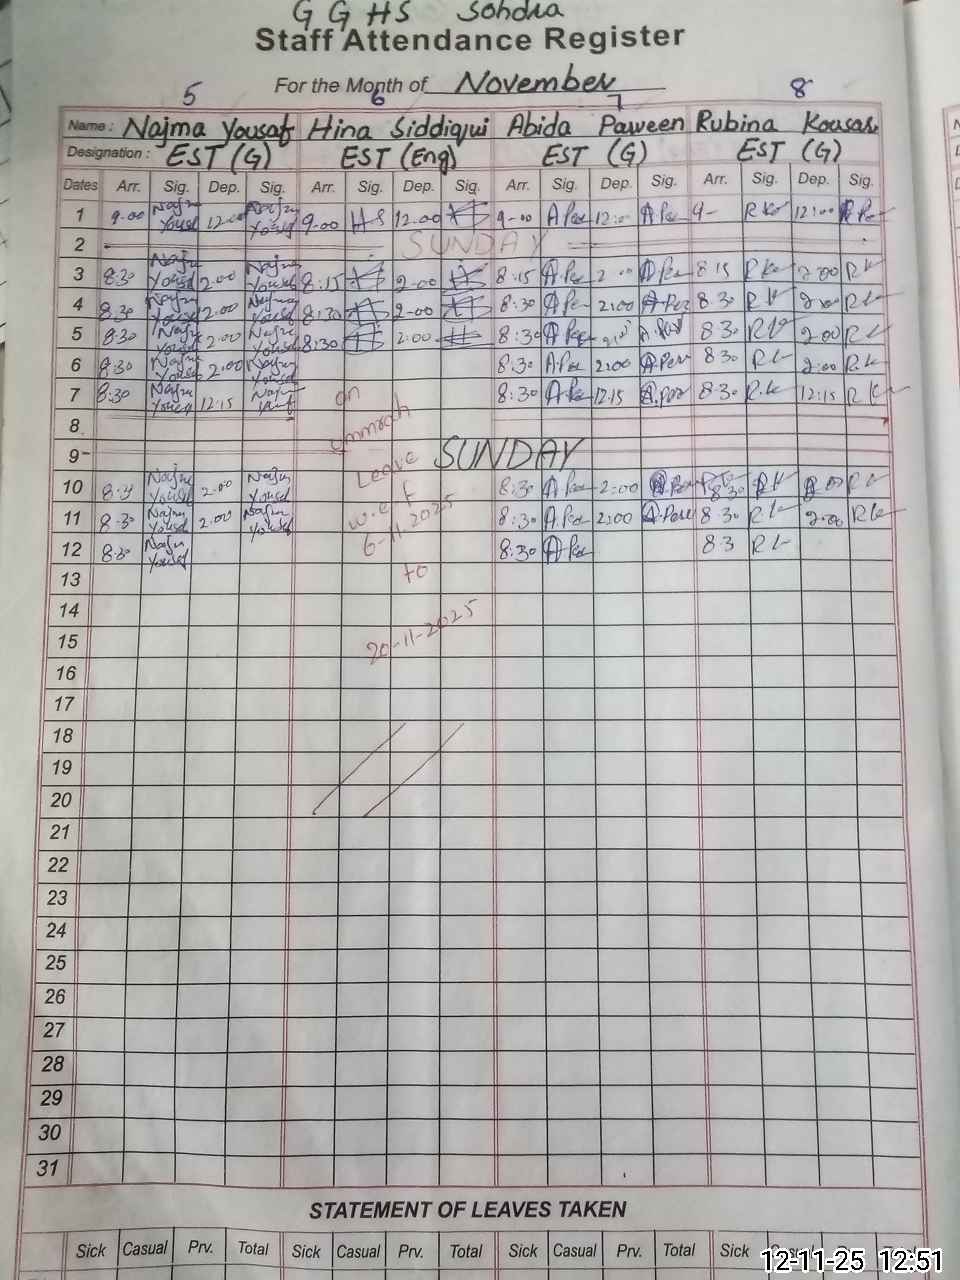 G G H S Sohdra
Staff Attendance Register
For the Month of November
5 6 7 8
Name : Najma Yousaf Hina Siddiqui Abida Parveen Rubina Kousar
Designation : EST (G) EST (Eng) EST (G) EST (G)
Dates Arr. Sig. Dep. Sig. Arr. Sig. Dep. Sig. Arr. Sig. Dep. Sig. Arr. Sig. Dep. Sig.
1 9-00 Najma Yousaf 12:00 Najma Yousaf 9-00 HS 12.00 9-00 A.Par 12:00 A.Par 9- RK 12:00
2 SUNDAY
3 8:30 Najma Yousaf 2.00 Najma Yousaf 8:15 2-00 8:15 A.Par 2:00 A.Par 8 15 RK 2:00 RK
4 8:30 Najma Yousaf 2.00 Najma Yousaf 8:30 2-00 8:30 A.Par 2:00 A.Par 8 30 RK 2:00 RK
5 8:30 Najma Yousaf 2:00 Najma Yousaf 8:30 2:00 8:30 A.Par A.Par 8 30 RK 2:00 RK
6 8:30 Najma Yousaf 2:00 Najma Yousaf 8:30 A.Par 2:00 A.Par 8 30 RK 2:00 RK
7 8:30 Najma Yousaf 12:15 Najma on 8:30 A.Par 12.15 A.Par 8 30 R.K 12:15 RK
8 ummrah
9 Leave SUNDAY
10 8:30 Najma Yousaf 2-00 Najma Yousaf w.e.f 8:30 A.Par 2:00 A.Par 8 30 RK RK
11 8-30 Najma Yousaf 2.00 Najma Yousaf 6-11-2025 8:30 A.Par 2:00 A.Par 8 30 RK 2:00 RK
12 8:30 Najma Yousaf 8:30 A.Par 8 3 RK
13 to
14
15 20-11-2025
16
17
18
19
20
21
22
23
24
25
26
27
28
29
30
31
STATEMENT OF LEAVES TAKEN
Sick Casual Prv. Total Sick Casual Prv. Total Sick Casual Prv. Total Sick Casual Prv. Total
12-11-25 12:51